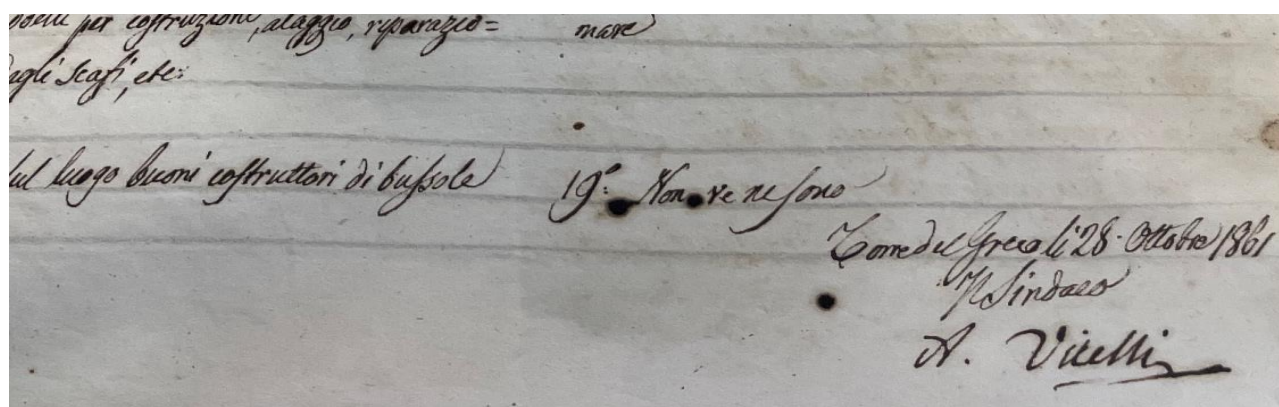 per costruzione, alaggio, riparazio=
mare
agli scafi, etc:
sul luogo buoni costruttori di bussole
19.° Non ve ne sono
Torre del Greco li 28. Ottobre 1861
Il Sindaco
A. Vitelli